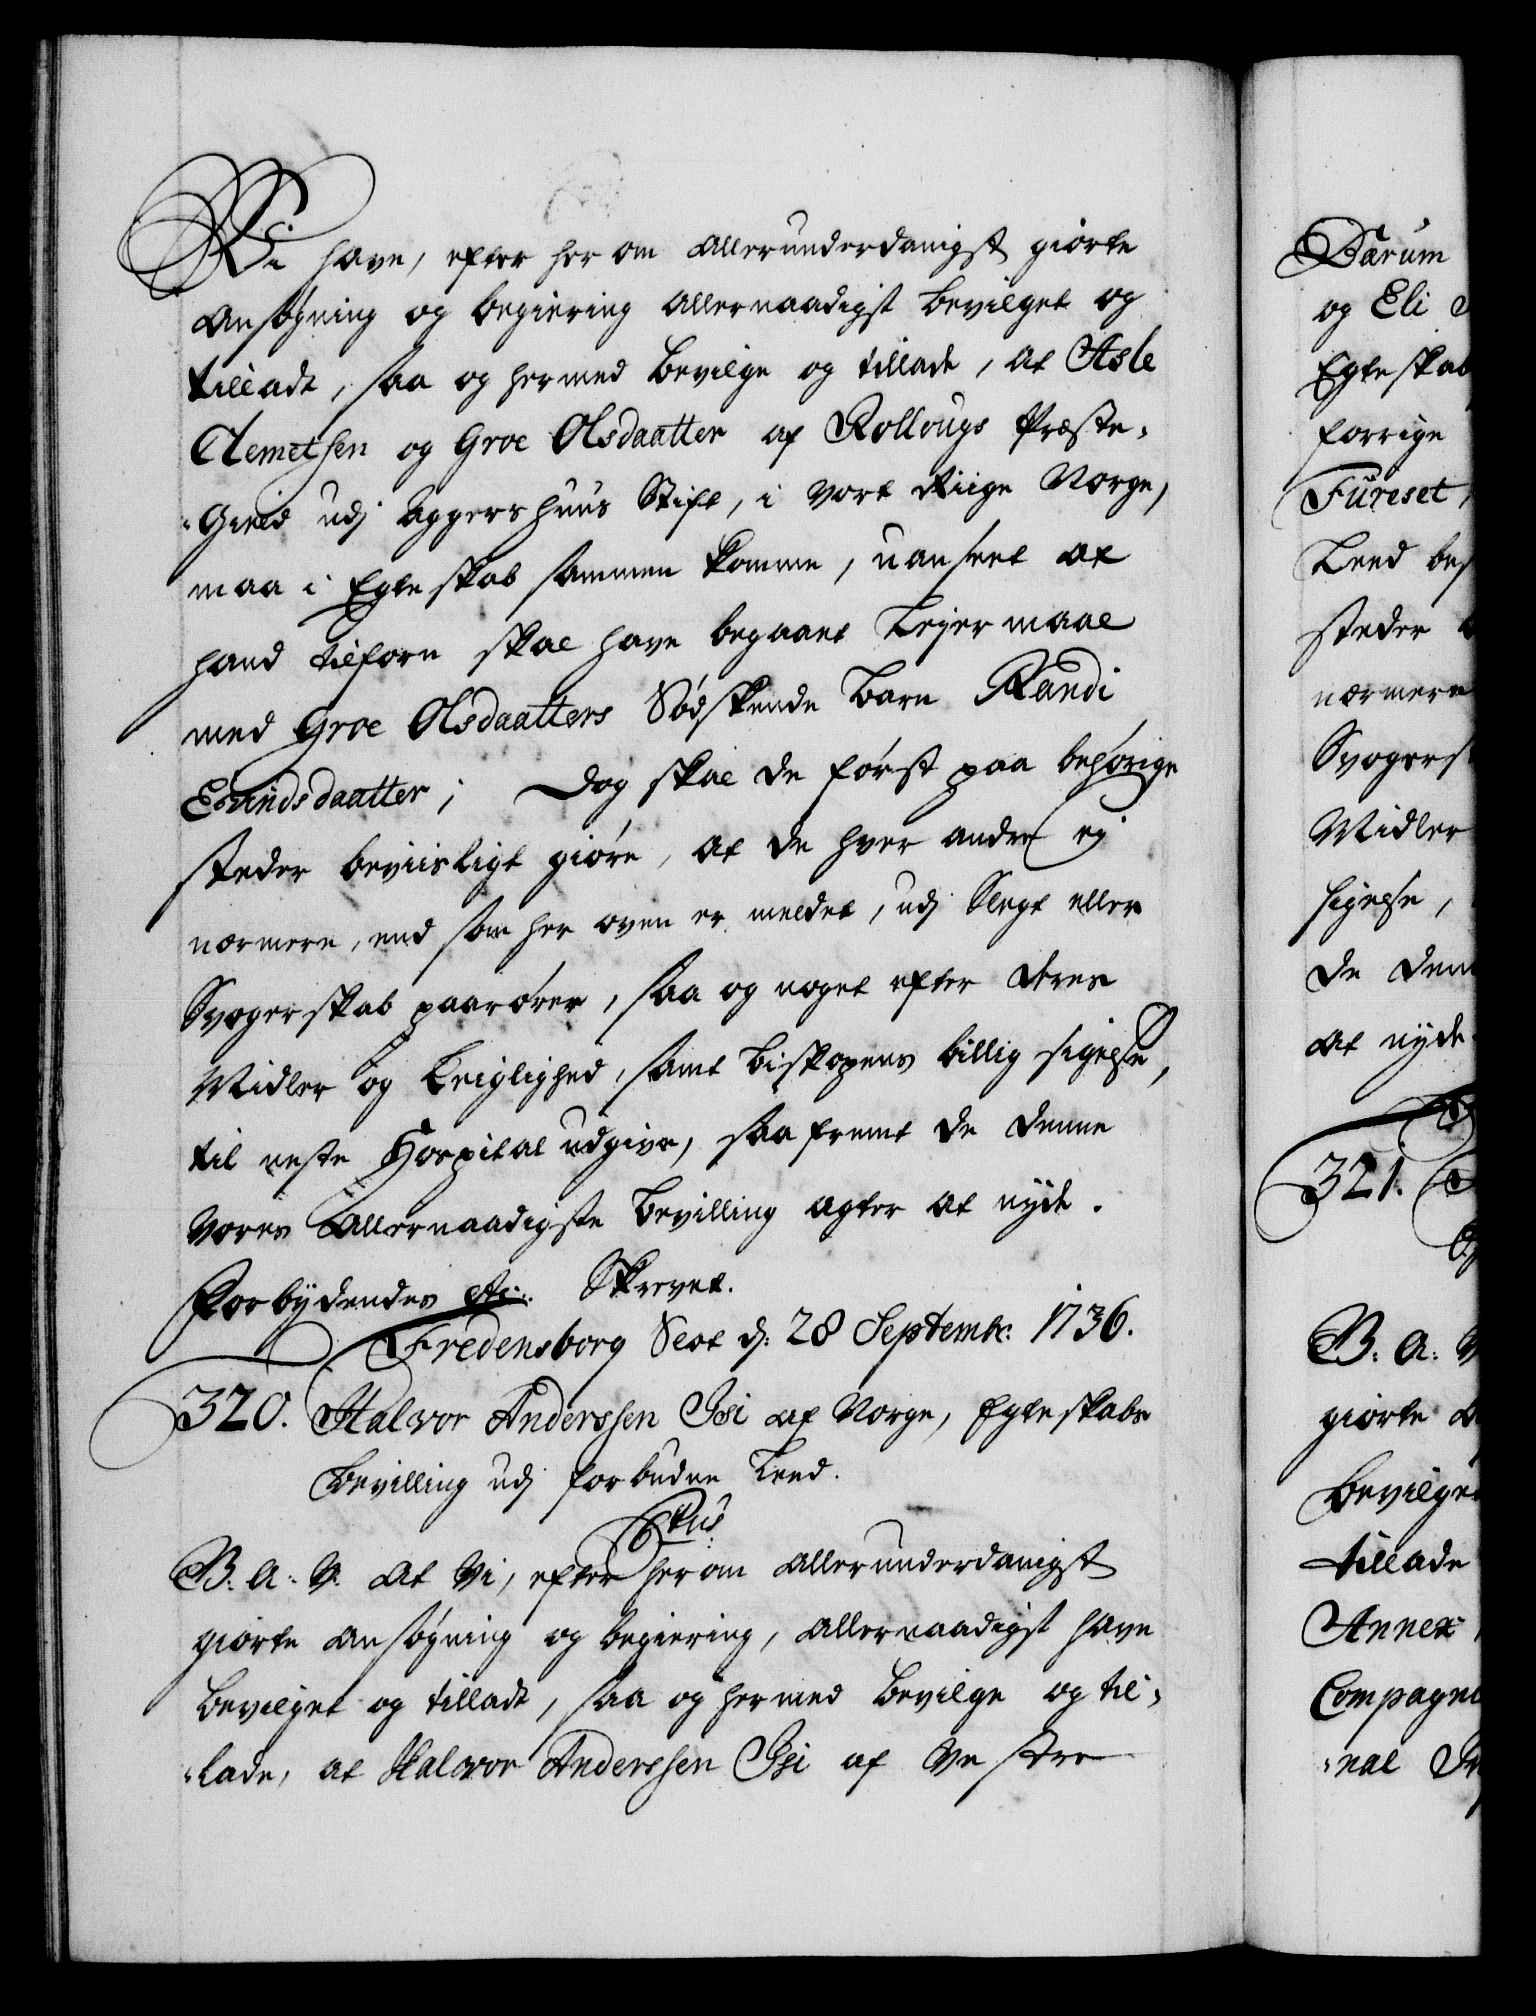 Vi have, efter her om allerunderdanigst giorte
Ansøgning og begiering allernaadigst bevilget og
tilladt, saa og hermed bevilge og tillade, at Asle
Clemetsen og Groe Olsdaatter af Rollougs Præste-
-Gield udj Aggershuus Stift, i vort Riige Norge,
maa i Egteskab sammen komme, uanseet at
hand tilforn skal have begaaet Lejermaal
med Groe Olsdaatters Sødskende Barn Randi
Evindsdaatter; Dog skal de først paa behørige
steder beviisligt giøre, at de hver andre ej
nærmere, end som her oven er meldet, udj Slegt eller
Svogerskab paarører, saa og noget efter deres
Midler og Leiglighed, samt Biskopens billig sigelse,
til neste Hospital udgive, saafremt de denne
Vores allernaadigste Bevilling agter at nyde.
Forbydendes etc: Skrevet.
Fredensborg Slot d: 28 Septembr: 1736.
320. Halvor Anderssen Isi af Norge, Egteskabs
Bevilling udj forbudne Leed.
B: A: V: at Vi, efter herom allerunderdanigst
giorte Ansøgning og begiering, allernaadigst have
bevilget og tilladt, saa og hermed bevilge og til-
-lade, at Halvor Anderssen Isi af Vestre
Bærum
og Eli
Egteskab
forrige
Fureset,
Leed bes
steder
nærmere
Svogers
Midler
sigelse,
de den
at nyde
321.
B: A: V
giorte
bevilge
tillade
Annex
Compagni
-nal